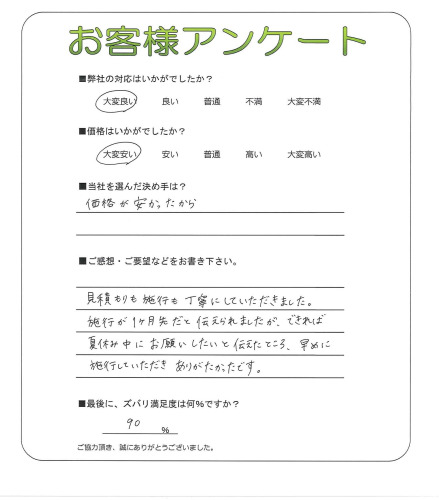 お客様アンケート
■弊社の対応はいかがでしたか？
大変良い 良い 普通 不満 大変不満
■価格はいかがでしたか？
大変安い 安い 普通 高い 大変高い
■当社を選んだ決め手は？
価格が安かったから
■ご感想・ご要望などをお書き下さい。
見積もりも施行も丁寧にしていただきました。
施行が1ヶ月先だと伝えられましたが、できれば
夏休み中にお願いしたいと伝えたところ、早めに
施行していただきありがたかったです。
■最後に、ズバリ満足度は何％ですか？
90 ％
ご協力頂き、誠にありがとうございました。